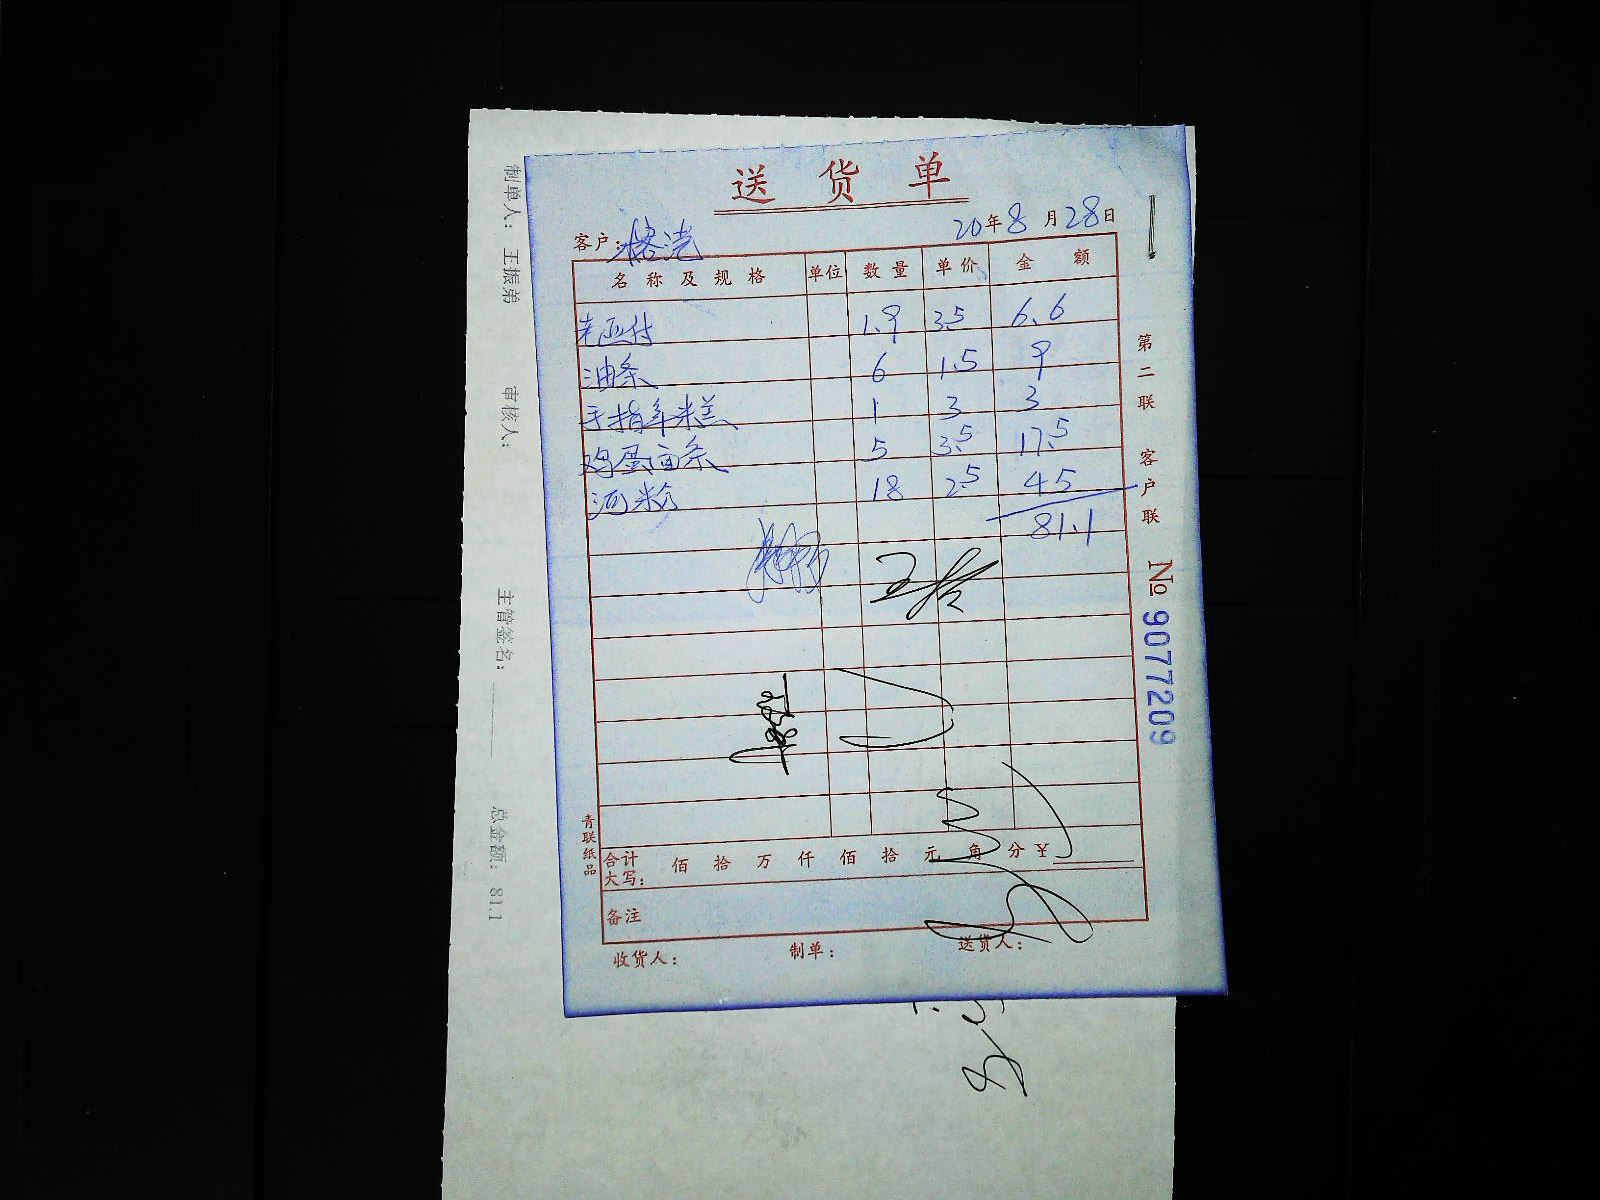 送货单
客户:
20年8月28日
名称及规格 单位 数量 单价 金额
1.9 3.5 6.6
油条 6 1.5 9
手指年糕 1 3 3
鸡蛋面条 5 3.5 17.5
河粉 18 2.5 45
81.1
合计大写: 佰 拾 万 仟 佰 拾 元 角 分 ¥
备注
收货人: 制单: 送货人:
第二联 客户联
№ 9077209
青联纸品
制单人: 王振弟 审核人: 主管签名: 总金额: 81.1